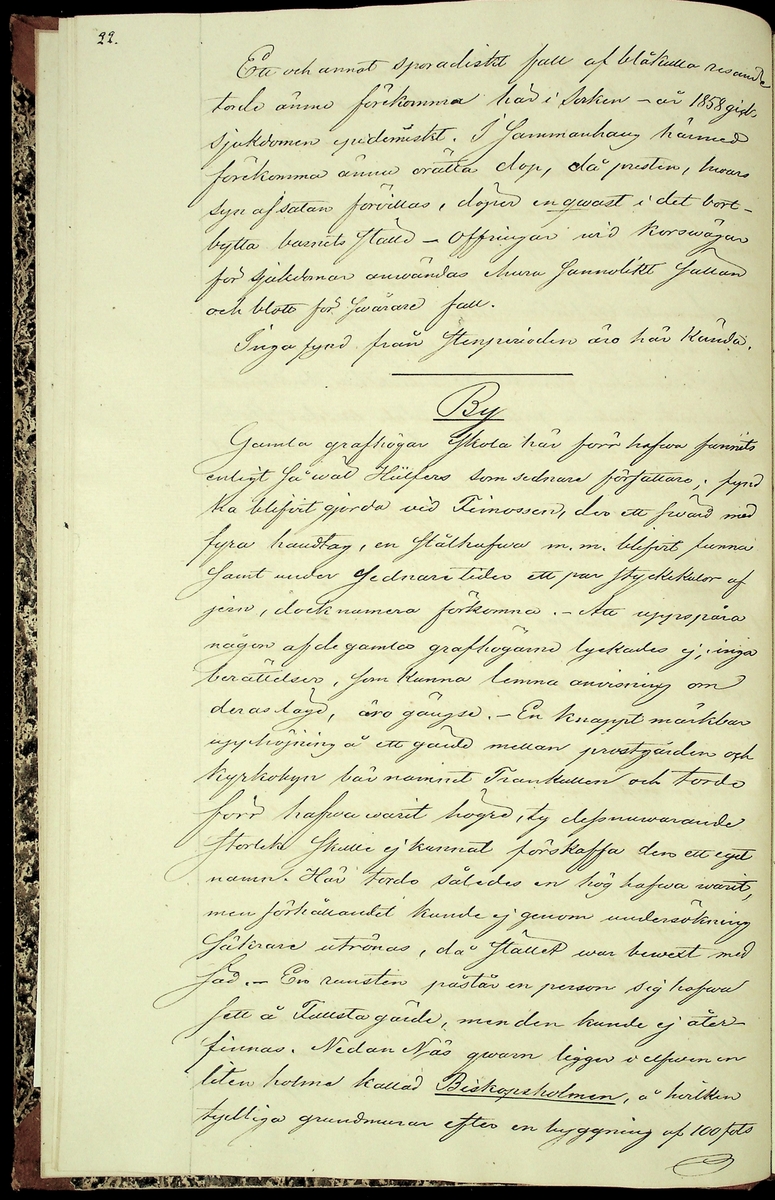 22.
Ett och annat sporadiskt fall af blåkulla resande
torde ännu förekomma här i socken – år 1858 gick
sjukdomen epidemiskt. I sammanhang härmed
förekomma ännu orätta dop, då presten, hvars
syn af satan förvillas, döper en qwast i det bort-
bytta barnets ställe – Offringar wid korswägar
för sjukdomar användas hwar sannolikt
och bloto för swårare fall.
Inga fynd från stenperioden äro här kända.
By
Gamla grafhögar skola här förr hafwa funnits
enligt så wäl Hülfers som sednare författare; fynd
ha blifvit gjorda vid Finnossen, der ett swärd med
fyra handtag, en stålhafwa m.m. blifvit funna
samt under sednare tider ett par styckekulor af
jern, dock numera förkomna. – Att uppspåra
någon af de gamla grafhögarne lyckades ej; inga
berättelser, som kunna lemna anvisning om
deras läge, äro gängse. – En knappt märkbar
upphöjning å ett gärde mellan prostgården och
kyrkobyn bär namnet Trankullen och torde
förr hafwa warit högre, ty dess nuwarande
storlek skulle ej kunnat förskaffa den ett eget
namn. Här torde således en hög hafwa warit,
men förhållandet kunde ej genom undersökning
säkrare utrönas, då stället war bewext med
säd. – En runsten påstår en person sig hafwa
sett å Fullsta gärde, men den kunde ej åter-
finnas. Nedan Näs qwarn ligger i elfwen en
liten holme kallad Biskopsholmen, å hvilken
tydliga grundmurar efter en byggning af 100 fots